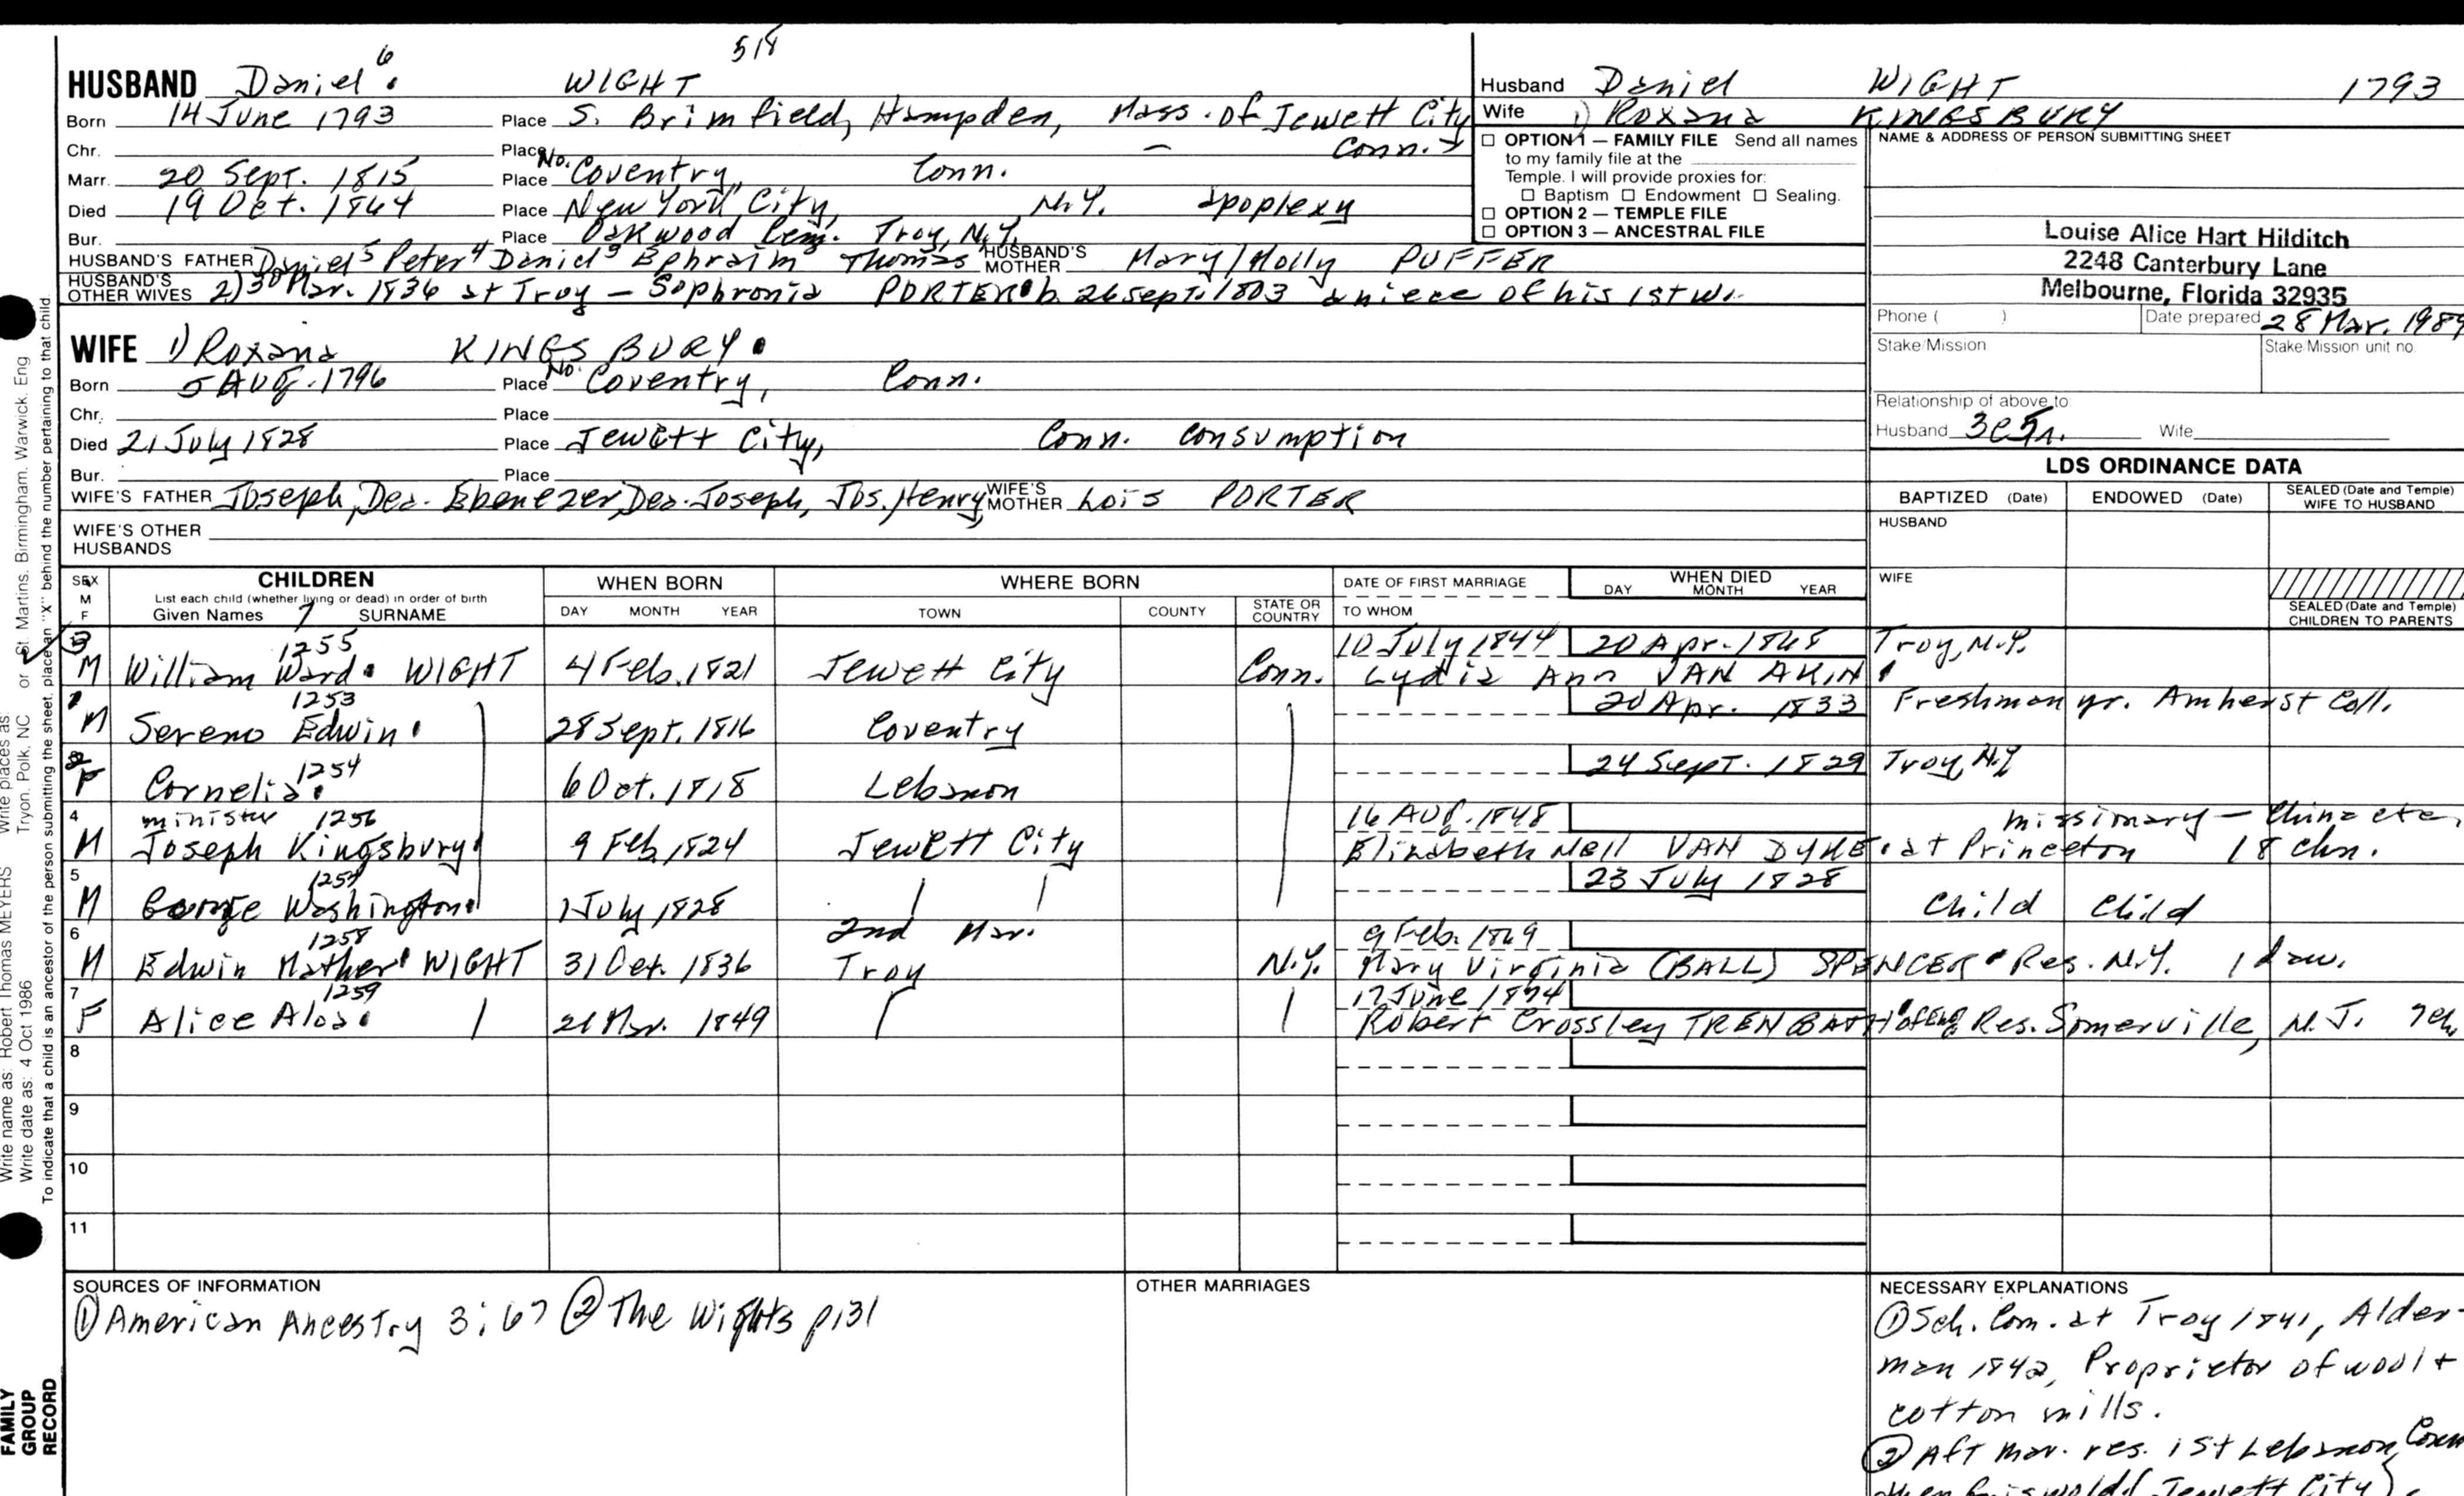 518
HUSBAND Daniel 6. WIGHT
Born 14 June 1793 Place S. Brimfield, Hampden, Mass. of Jewett City
Chr. Place — Conn.
Marr. 20 Sept. 1815 Place No. Coventry, Conn.
Died 19 Oct. 1864 Place New York City, N.Y. apoplexy
Bur. Place Oakwood Cem. Troy, N.Y.
HUSBAND'S FATHER Daniel5 Peter4 Daniel3 Ephraim2 Thomas HUSBAND'S MOTHER Mary/Molly PUFFER
HUSBAND'S OTHER WIVES 2) 30 Mar. 1836 at Troy – Sophronia PORTER b. 26 Sept. 1803 a niece of his 1st w.
WIFE 1) Roxana KINGSBURY.
Born 5 Aug. 1796 Place No. Coventry, Conn.
Chr. Place
Died 21 July 1828 Place Jewett City, Conn. consumption
Bur. Place
WIFE'S FATHER Joseph, Dea. Ebenezer, Dea. Joseph, Jos. Henry, WIFE'S MOTHER Lois PORTER
WIFE'S OTHER HUSBANDS
Husband Daniel WIGHT 1793
Wife 1) Roxana KINGSBURY
☐ OPTION 1 — FAMILY FILE Send all names
to my family file at the
Temple. I will provide proxies for:
☐ Baptism ☐ Endowment ☐ Sealing.
☐ OPTION 2 — TEMPLE FILE
☐ OPTION 3 — ANCESTRAL FILE
NAME & ADDRESS OF PERSON SUBMITTING SHEET
Louise Alice Hart Hilditch
2248 Canterbury Lane
Melbourne, Florida 32935
Phone ( ) Date prepared 28 Mar. 1989
Stake/Mission Stake/Mission unit no.
Relationship of above to:
Husband Wife
LDS ORDINANCE DATA
BAPTIZED (Date) ENDOWED (Date) SEALED (Date and Temple) WIFE TO HUSBAND
HUSBAND
WIFE
SEALED (Date and Temple) CHILDREN TO PARENTS
SEX M F CHILDREN WHEN BORN WHERE BORN DATE OF FIRST MARRIAGE WHEN DIED
List each child (whether living or dead) in order of birth DAY MONTH YEAR
Given Names 7 SURNAME DAY MONTH YEAR TOWN COUNTY STATE OR COUNTRY TO WHOM
3 1255 10 July 1844 20 Apr. 1868 Troy, N.Y.
M William Ward. WIGHT 4 Feb. 1821 Jewett City Conn. Lydia Ann VAN AKIN
1 1253 20 Apr. 1833 Freshman yr. Amherst Coll.
M Sereno Edwin 28 Sept. 1816 Coventry
2 1254 24 Sept. 1829 Troy, N.Y
F Cornelia. 6 Oct. 1818 Lebanon
4 minister 1256 16 Aug. 1848 missionary – China etc.
M Joseph Kingsbury 9 Feb. 1824 Jewett City Elizabeth Nell VAN DYKE. at Princeton 18 chn.
5 1257 23 July 1828
M George Washington 1 July 1828 Child Child
6 1258 2nd Mar. 9 Feb. 1869
M Edwin Mather WIGHT 31 Oct. 1836 Troy N.Y. Mary Virginia (BALL) SPENCER. Res. N.Y. 1 dau.
7 1259 17 June 1874
F Alice Aloa. 21 Mar. 1849 Robert Crossley TRENBATH of Eng. Res. Somerville, N.J. 7 ch.
8
9
10
11
SOURCES OF INFORMATION
① American Ancestry 3:67 ② The Wights p131
OTHER MARRIAGES
NECESSARY EXPLANATIONS
① Sch. Com. at Troy 1841, Alder-
man 1842, Proprietor of wool +
cotton mills.
② Aft mar. res. 1st Lebanon, Conn
then Griswold (Jewett City)
Write places as: St. Martins, Birmingham, Warwick, Eng or Tryon, Polk, NC
Write name as: Robert Thomas MEYERS
Write date as: 4 Oct 1986
To indicate that a child is an ancestor of the person submitting the sheet, place an "X" behind the number pertaining to that child.
FAMILY
GROUP
RECORD